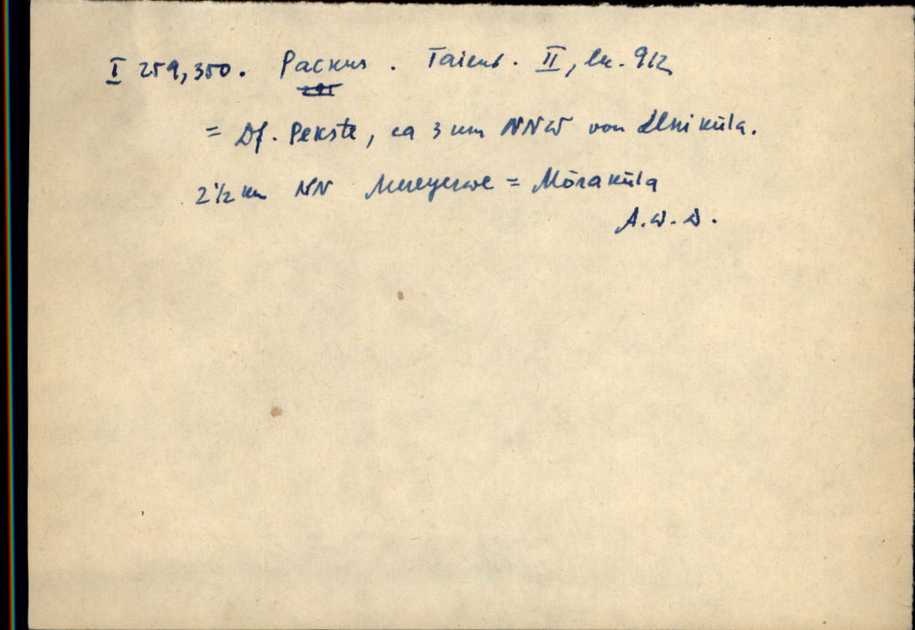 I 259,350. Packus. Taienb. II, lk. 912
= Df. Pekste, ca 3 km NNW von Uniküla.
2½ km NN = Mõraküla
A.W.D.